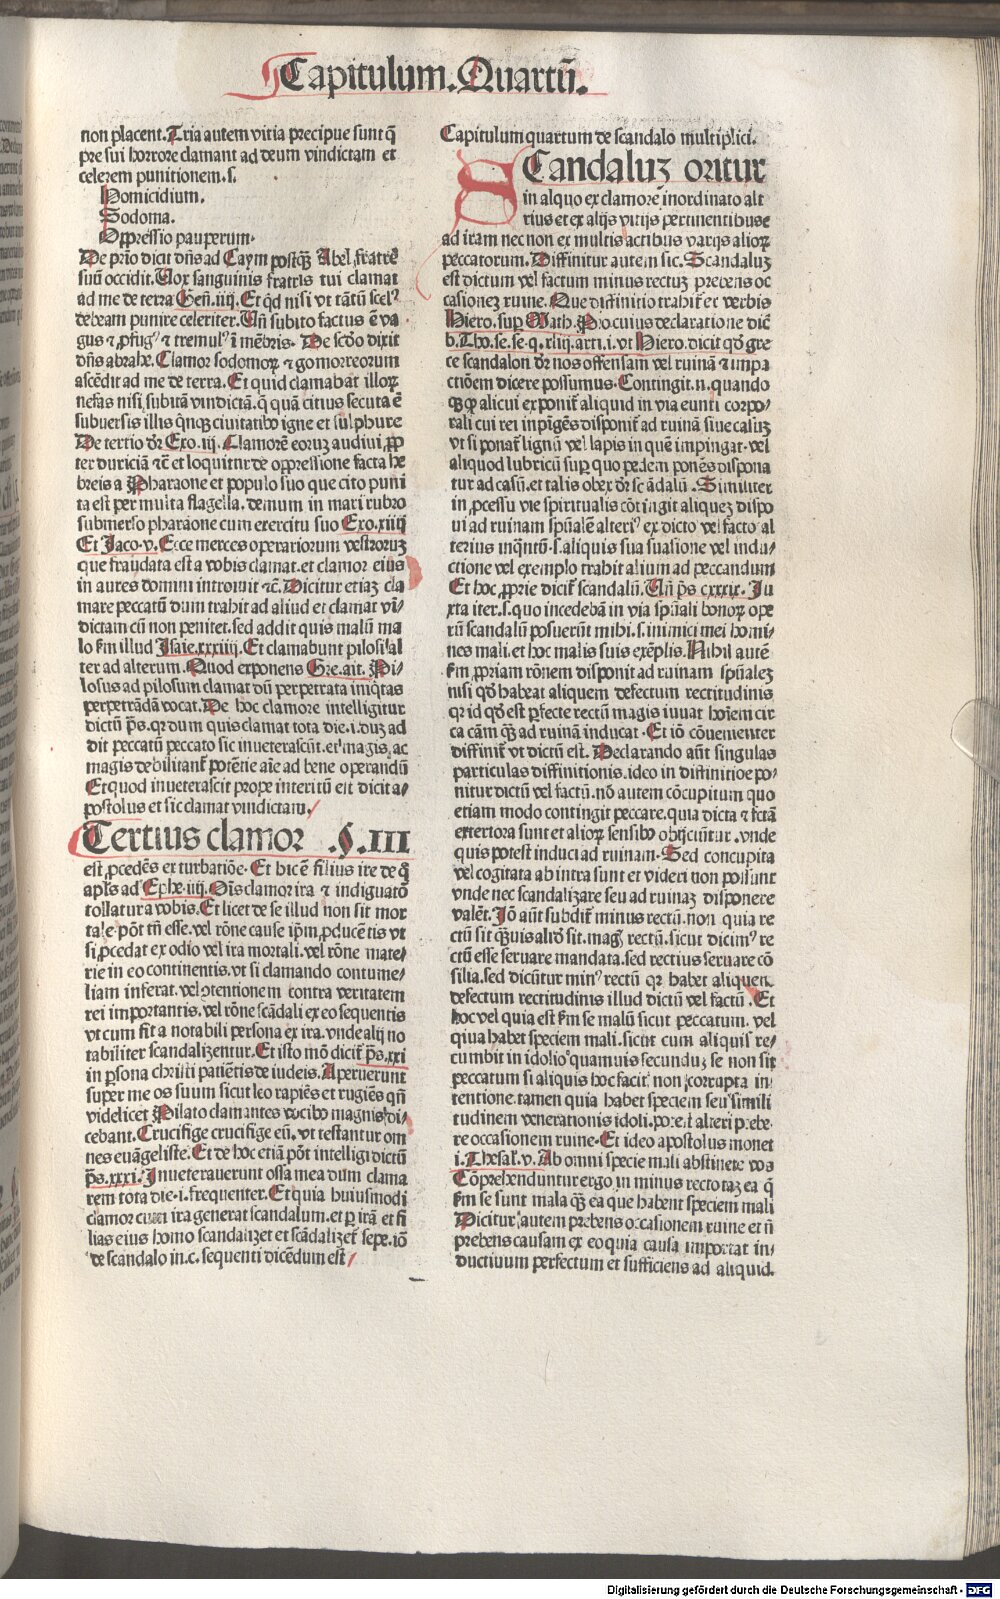 Capitulum. Quartũ.
non placent. Tria autem vitia precipue sunt q̃
pre sui horrore clamant ad deum vindictam et
celerem punitionem .s.
Homicidium.
Sodoma.
Oppressio pauperum.
De prĩo dicit dñs ad Caym postqꝫ Abel fratrẽ
suũ occidit. Uox sanguinis fratris tui clamat
ad me de terra Geñ. iiij. Et qd̓ nisi vt tãtũ scelꝰ
debeam punire celeriter. Uñ subito factus ẽ va
gus ⁊ ꝓfugꝰ ⁊ tremulꝰ ĩ mẽbris. De scḋo dixit
dñs abrahe. Clamor sodomoꝝ ⁊ gomorreorum
ascẽdit ad me de terra. Et quid clamabat illoꝝ
nefas nisi subitã vindictã. q̃ quã citius secuta ẽ
subuersis illis q̃nqꝫ ciuitatibꝰ igne et sulphure
De tertio dr̃ Exo. iij. Clamorẽ eoruꝫ audiui ꝓp
ter duriciã ⁊c̃ et loquitur de oppressione facta he
breis a Pharaone et populo suo que cito puni
ta est per multa flagella. demum in mari rubro
submerso pharaone cum exercitu suo Exo. xiiij
Et Jaco. v. Ecce merces operariorum vestroruꝫ
que fraudata est a vobis clamat. et clamor eius
in aures domini introiuit ⁊c̃. Dicitur etiaꝫ cla
mare peccatũ dum trahit ad aliud et clamat vi/
dictam cũ non penitet. sed addit quis malũ ma
lo ẜm illud Isaie. xxxiiij. Et clamabunt pilosi al
ter ad alterum. Quod exponens Gre. ait. Pi/
losus ad pilosum clamat dũ perpetrata iniq̃tas
perpetrãdã vocat. De hoc clamore intelligitur
dictũ ps̃. qꝛ dum quis clamat tota die .i. duꝫ ad
dit peccatũ peccato sic inueterascũt. et magis ac
magis debilitant̃ potẽtie aĩe ad bene operandũ
Et quod inueterascit prope interitũ est dicit a/
postolus et sic clamat vindictam.
Tertius clamor .§. III
est ꝓcedẽs ex turbatiõe. Et hic ẽ filius ire de q̃
apl̃s ad Ephe. iiij. Oĩs clamor ira ⁊ indignatõ
tollatur a vobis. Et licet de se illud non sit mor
tale. põt tñ esse. vel rõne cause ip̃m ꝓducẽtis vt
si ꝓcedat ex odio vel ira mortali. vel rõne mate/
rie in eo continentis. vt si clamando contume/
liam inferat. vel ↄtentionem contra veritatem
rei importantis. vel rõne scãdali ex eo sequentis
vt cum fit a notabili persona ex ira. vnde alij no
tabiliter scandalizentur. Et isto mõ dicit̃ ps̃. xxi
in ꝑsona christi patiẽtis de iudeis. Aperuerunt
super me os suum sicut leo rapiẽs et rugiẽs qñ
videlicet Pilato clamantes vocibꝰ magnis di/
cebant. Crucifige crucifige eũ. vt testantur om
nes euãgeliste. Et de hoc etiã põt intelligi dictũ
ps̃. xxxi. Inueterauerunt ossa mea dum clama
rem tota die .i. frequenter. Et quia huiusmodi
clamor cum ira generat scandalum. et ꝑ irã et fi
lias eius homo scandalizet et scãdalizet̃ sepe. iõ
de scandalo in .c. sequenti dicẽdum est
Capitulum quartum de scandalo multiplici.
SCandaluꝫ oritur
in aliquo ex clamore inordinato alt
rius et ex alijs vitijs pertinentibus
ad iram nec non ex multis actibus varijs alioꝝ
peccatorum. Diffinitur autem sic. Scandaluꝫ
est dictum vel factum minus rectuꝫ prebens oc
casioneꝫ ruine. Que diffinitio trahit̃ ex verbis
Hiero. sup̃ Math. Pro cuius declaratione dic̃
b. Tho. se. se. q. xliij. arti. i. vt Hiero. dicit qḋ gre
ce scandalon dr̃ nos offensam vel ruinã ⁊ impa
ctiõem dicere possumus. Contingit .n. quando
qꝫ qꝫ alicui exponit̃ aliquid in via eunti corpo/
rali cui rei inpĩgẽs disponit̃ ad ruinã siue caluꝫ
vt si ponat̃ lignũ vel lapis in quẽ impingat. vel
aliquod lubricũ sup̃ quo pedem ponẽs dispona
tur ad casũ. et talis obex dr̃ scãdalũ. Similiter
in ꝓcessu vie spiritualis cõtingit aliqueꝫ dispo
ni ad ruinam spũalẽ alteriꝰ ex dicto vel facto al
terius inq̃ntũ .s. aliquis sua suasione vel indu/
ctione vel exemplo trahit alium ad peccandum
Et hoc ꝓprie dicit̃ scandalũ. Uñ ps̃ cxxxix. Ju
xta iter .s. quo incedebã in via spũali bonoꝝ ope
rũ scandalũ posuerũt mihi .s. inimici mei homi/
nes mali. et hoc malis suis exẽplis. Nihil autẽ
ẜm ꝓpriam rõnem disponit ad ruinam spũaleꝫ
nisi qḋ habeat aliquem defectum rectitudinis
qꝛ id qḋ est ꝑfecte rectũ magis iuuat hoĩem cir
ca cãm qꝫ ad ruinã inducat. Et iõ cõuenienter
diffinit̃ vt dictũ est. Declarando aũt singulas
particulas diffinitionis. ideo in diffinitiõe po/
nitur dictũ vel factũ. nõ autem cõcupitum quo
etiam modo contingit peccare. quia dicta ⁊ fctã
exteriora sunt et alioꝝ sensibꝰ obijciũtur. vnde
quis potest induci ad ruinam. Sed concupita
vel cogitata ab intra sunt et videri non possunt
vnde nec scandalizare seu ad ruinaꝫ disponere
valẽt. Jõ aũt subdit̃ minus rectũ. non quia re
ctũ sit qꝫuis aliḋ sit mag̃ rectũ. sicut dicimꝰ re
ctũ esse seruare mandata. sed rectius seruare cõ
silia. sed dicũtur minꝰ rectũ qꝛ habet aliquem
defectum rectitudinis illud dictũ vel factũ. Et
hoc vel quia est ẜm se malũ sicut peccatum. vel
quia habet speciem mali. sicut cum aliquis re/
cumbit in idolio quamuis secunduꝫ se non sit
peccatum si aliquis hoc facit non corrupta in/
tentione. tamen quia habet speciem seu simili
tudinem venerationis idoli. potest alteri prebe
re occasionem ruine. Et ideo apostolus monet
i. Thesal. v. Ab omni specie mali abstinete vos
Cõprehenduntur ergo in minus recto taꝫ ea q̃
ẜm se sunt mala qꝫ ea que habent speciem mali
Dicitur autem prebens occasionem ruine et ñ
prebens causam ex eo quia causa importat in/
ductiuum perfectum et sufficiens ad aliquid.
Digitalisierung gefördert durch die Deutsche Forschungsgemeinschaft - DFG